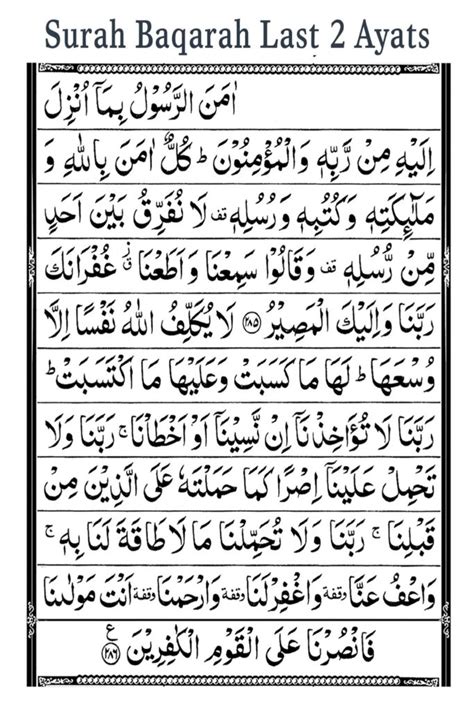 Surah Baqarah Last 2 Ayats
اٰمَنَ الرَّسُوۡلُ بِمَاۤ اُنۡزِلَ
اِلَيۡهِ مِنۡ رَّبِّهٖ وَالۡمُؤۡمِنُوۡنَ ؕ كُلٌّ اٰمَنَ بِاللّٰهِ وَ
مَلٰٓٮِٕكَتِهٖ وَكُتُبِهٖ وَرُسُلِهٖ قف لَا نُفَرِّقُ بَيۡنَ اَحَدٍ
مِّنۡ رُّسُلِهٖ قف وَقَالُوۡا سَمِعۡنَا وَاَطَعۡنَا ق ز غُفۡرَانَكَ
رَبَّنَا وَاِلَيۡكَ الۡمَصِيۡرُ ﴿۲۸۵﴾ لَا يُكَلِّفُ اللّٰهُ نَفۡسًا اِلَّا
وُسۡعَهَا ؕ لَهَا مَا كَسَبَتۡ وَعَلَيۡهَا مَا اكۡتَسَبَتۡ ؕ
رَبَّنَا لَا تُؤَاخِذۡنَاۤ اِنۡ نَّسِيۡنَاۤ اَوۡ اَخۡطَاۡنَا ۚ رَبَّنَا وَلَا
تَحۡمِلۡ عَلَيۡنَاۤ اِصۡرًا كَمَا حَمَلۡتَهٗ عَلَى الَّذِيۡنَ مِنۡ
قَبۡلِنَا ۚ رَبَّنَا وَلَا تُحَمِّلۡنَا مَا لَا طَاقَةَ لَنَا بِهٖ ۚ
وَاعۡفُ عَنَّا وقفة وَاغۡفِرۡ لَنَا وقفة وَارۡحَمۡنَا وقفة اَنۡتَ مَوۡلٰٮنَا
فَانۡصُرۡنَا عَلَى الۡقَوۡمِ الۡكٰفِرِيۡنَ ﴿۲۸۶﴾ ع